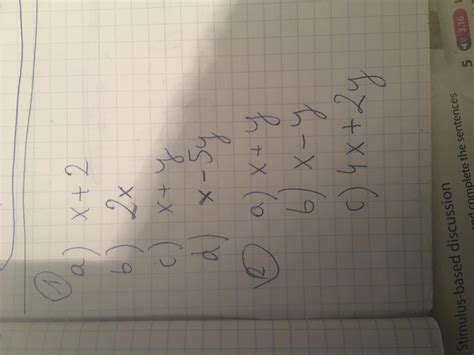 1
a) x + 2
b) 2x
c) x + y
d) x - 5y
2
a) x + y
b) x - y
c) 4x + 2y
Stimulus-based discussion
5 3.16
and complete the sentences